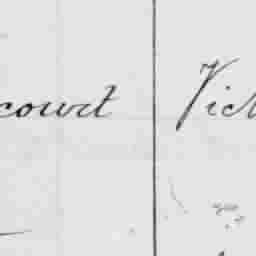 court Vict